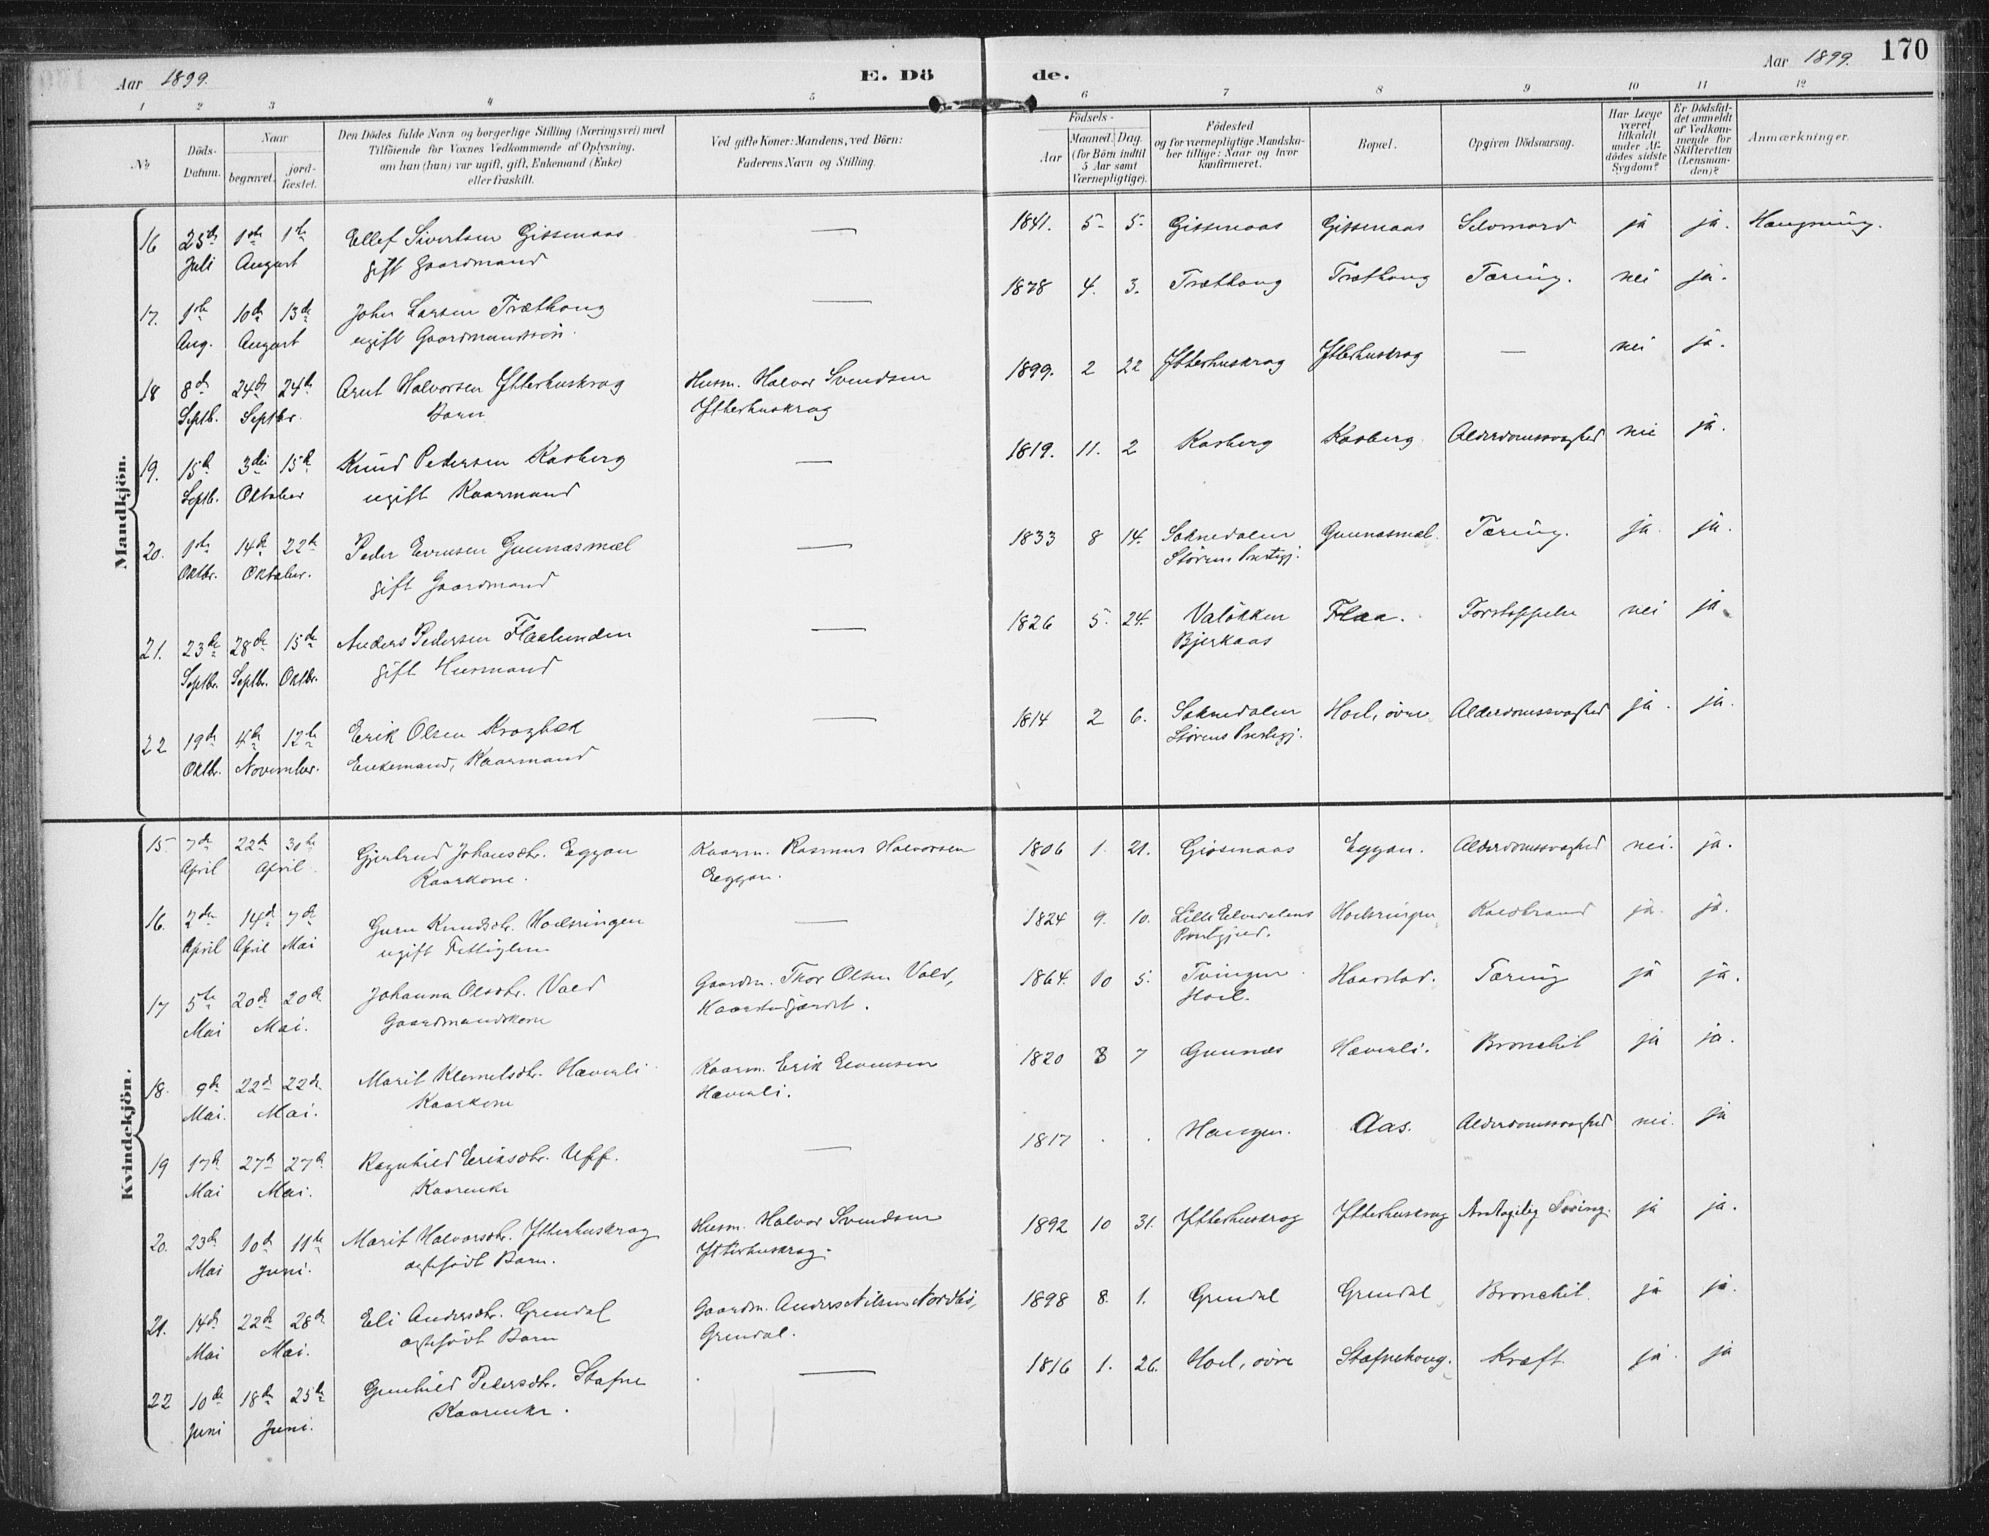 Aar 1899.
E. Döde.
Aar 1899.
170
1 2 3 4 5 6 7 8 9 10 11 12
No
Döds-Datum.
Naar
begravet.
jordfæstet.
Den Dödes fulde Navn og borgerlige Stilling (Næringsvei) med
Tilföiende for Voxnes Vedkommende af Oplysning,
om han (hun) var ugift, gift, Enkemand (Enke)
eller fraskilt.
Ved gifte Koner: Mandens, ved Börn:
Faderens Navn og Stilling.
Födsels-
Aar
Maaned. Dag.
(for Börn indtil
5 Aar samt
Værnepligtige).
Födested
og for værnepligtige Mandskaber tillige: Naar og hvor
konfirmeret.
Bopæl.
Opgiven Dödsaarsag.
Har Læge
været
tilkaldt
under Afdödes sidste
Sygdom?
Er Dödsfaldet anmeldt
af Vedkommende for
Skifteretten
(Lensmanden)?
Anmærkninger.
Mandkjön.
16 25de Juli 1ste 1ste August Ellef Sivertsen Gissenaas — 1841. 5 5 Gissenaas Gissenaas Selvmord ja ja. Hængning.
gift Gaardmand
17. 1ste Aug. 10de 13de August John Larsen Træthaug — 1878 4. 3. Træthaug Træthaug Tæring. nei ja.
ugift Gaardmandssön.
18 8de Septb. 24de 24de Septbr. Arnt Halvorsen Ytterhuskrog Husm. Halvor Svendsen 1899. 2 22 Ytterhuskrog Ytterhuskrog — nei ja.
Barn Ytterhuskrog
19. 15de Septb. 3die 15de Oktober Knud Pedersen Kasberg — 1819. 11. 2 Kasberg Kasberg. Alderdomssvaghed nei ja.
ugift Kaarmand
20. 1ste Oktbr. 14de 22de Oktober. Peder Evensen Gunnesmæl — 1833 8 14. Soknedalen Gunnesmæl. Tæring. ja. ja.
gift Gaardmand Störens Prestegj.
21. 23de Septbr. 28de Septbr. 15de Oktbr. Anders Pedersen Flaalunden — 1826 5. 24. Valökken Flaa. nei ja
gift Husmand Bjerkaas
22 19de Oktbr. 4de 12te November. Erik Olsen Krogbæk — 1814 2 6. Soknedalen Hoel, övre Alderdomssvaghed ja. ja.
Enkemand, Kaarmand Störens Prestegj.
Kvindekjön.
15 7de April 22de 30te April Gjertrud Johansdtr. Eggan Kaarm. Rasmus Halvorsen 1806 1. 21. Gissenaas Eggan. Alderdomssvaghed nei. ja.
Kaarkone. Eggan.
16. 2den April 14de April 7de Mai Guru Knudsdtr. Hoelsringen — 1824 9. 10. Lille Elvedalens Hoelsringen Koldbrand ja. ja.
ugift Fattiglem Prestegjeld.
17 5te Mai 20de 20de Mai. Johanna Olsdtr. Vold Gaardm. Thor Olsen Vold, 1864. 10 5. Haarstad. Tæring ja ja.
Gaardmandskone Hoel.
18. 9de Mai. 22de 22de Mai. Marit Klemetsdtr. Hæverli Kaarm. Erik Evensen 1820 8 7 Gunnes Hæverli. Bronchit ja ja.
Kaarkone Hæverli.
19 17de Mai 27de 27de Mai. Ragnhild Eriksdtr. Uff. — 1817 . . Haugen. Aas. Alderdomssvaghed nei. ja
Kaarenke
20. 23de Mai 10de 11te Juni. Marit Halvorsdtr. Ytterhuskrog Husm. Halvor Svendsen 1892 10 31. Ytterhuskrog Ytterhuskrog Antagelig Tæring. ja ja.
ægtefödt Barn. Ytterhuskrog.
21. 14de Mai 22de 28de Mai. Eli Andersdtr. Grendal Gaardm. Anders Nilsen Nordbö, 1898 8. 1. Grendal Grendal Bronchit. ja ja.
ægtefödt Barn Grendal.
22 10de Juni 18de 25de Juni. Gunhild Pedersdtr. Stafne — 1816 1. 26. Hoel, övre Stafnehaug. Kræft. ja ja
Kaarenke.